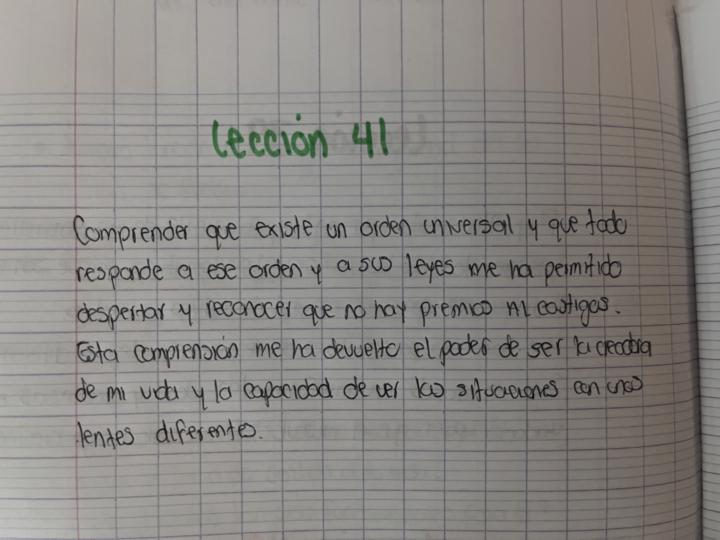 Lección 41
Comprender que existe un orden universal y que todo
responde a ese orden y a sus leyes me ha permitido
despertar y reconocer que no hay premios ni castigos.
Esta comprensión me ha devuelto el poder de ser la creadora
de mi vida y la capacidad de ver las situaciones con unos
lentes diferentes.